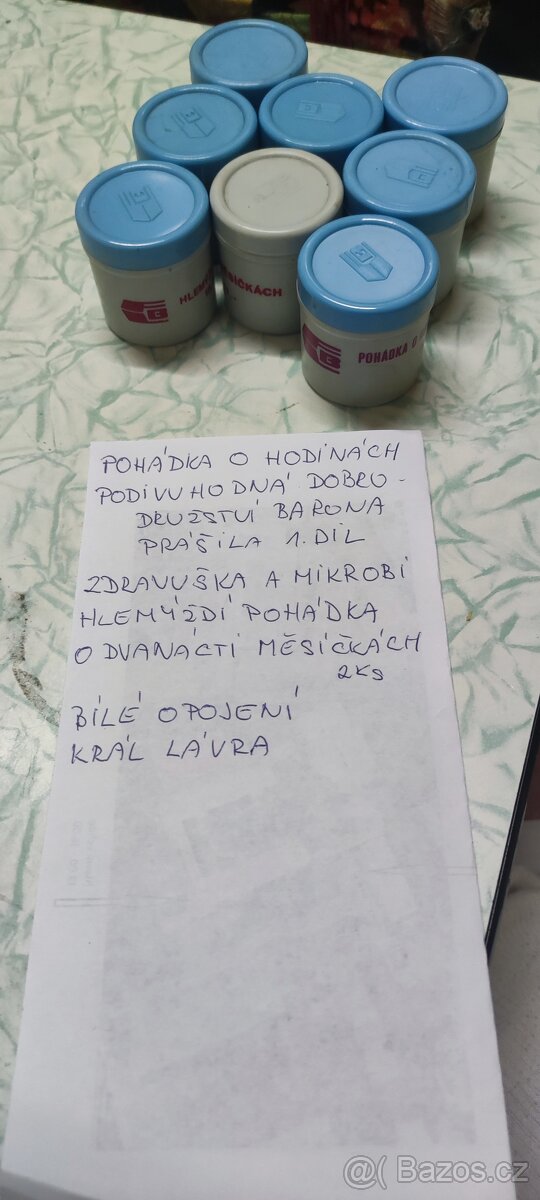 HLEMÝ
MĚSÍČKÁCH
POHÁDKA O
POHÁDKA O HODINÁCH
PODIVUHODNÁ DOBRO-
DRUŽSTVÍ BARONA
PRÁŠILA 1. DÍL
ZDRAVUŠKA A MIKROBI
HLEMÝŽDÍ POHÁDKA
O DVANÁCTI MĚSÍČKÁCH
2KS
BÍLÉ OPOJENÍ
KRÁL LÁVRA
@( Bazos.cz